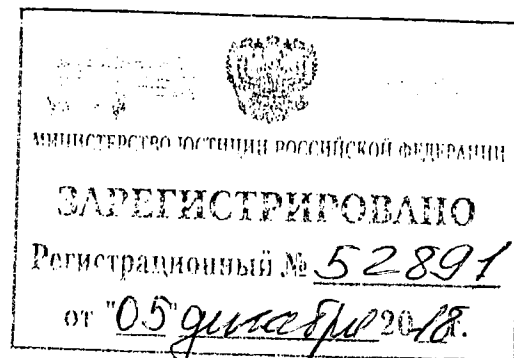 МИНИСТЕРСТВО ЮСТИЦИИ РОССИЙСКОЙ ФЕДЕРАЦИИ
ЗАРЕГИСТРИРОВАНО
Регистрационный № 52891
от "05" декабря 2018.